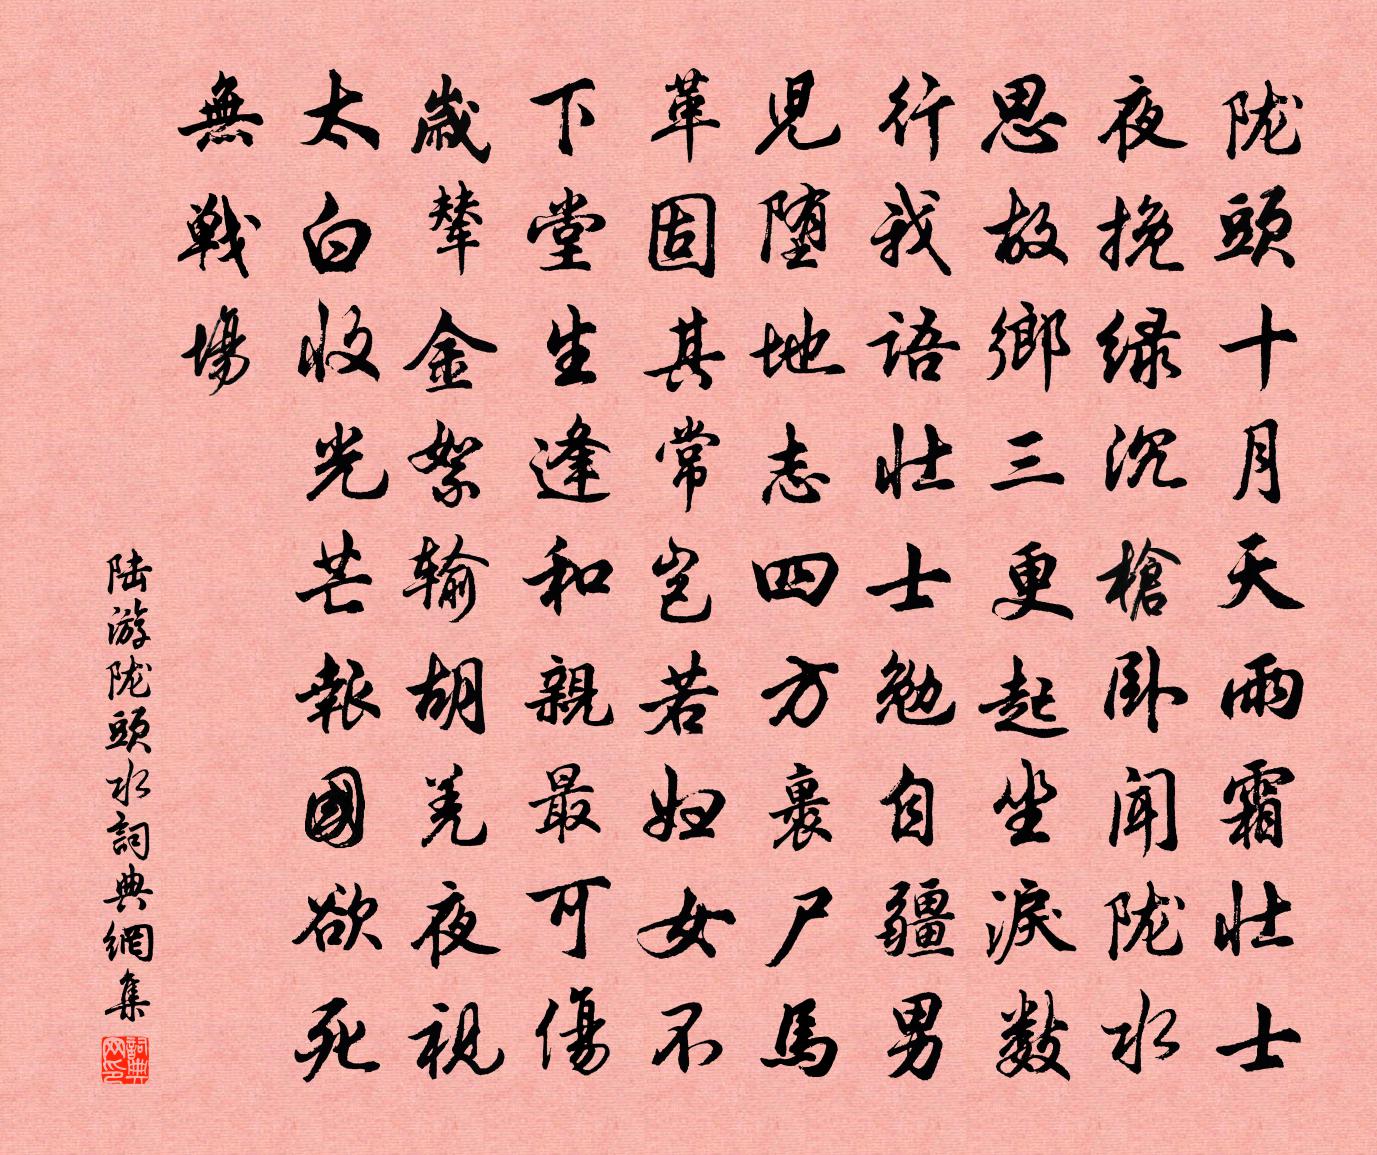 陇頭十月天雨霜壮士
夜挽绿沉槍卧闻陇水
思故鄉三更起坐淚数
行我語壮士勉自疆男
児堕地志四方裹尸馬
革固其常岂若妇女不
下堂生逢和親最可傷
歲輦金絮输胡羌夜視
太白收光芒報國欲死
無戦場
陆游陇頭水詞典網集
詞典网印